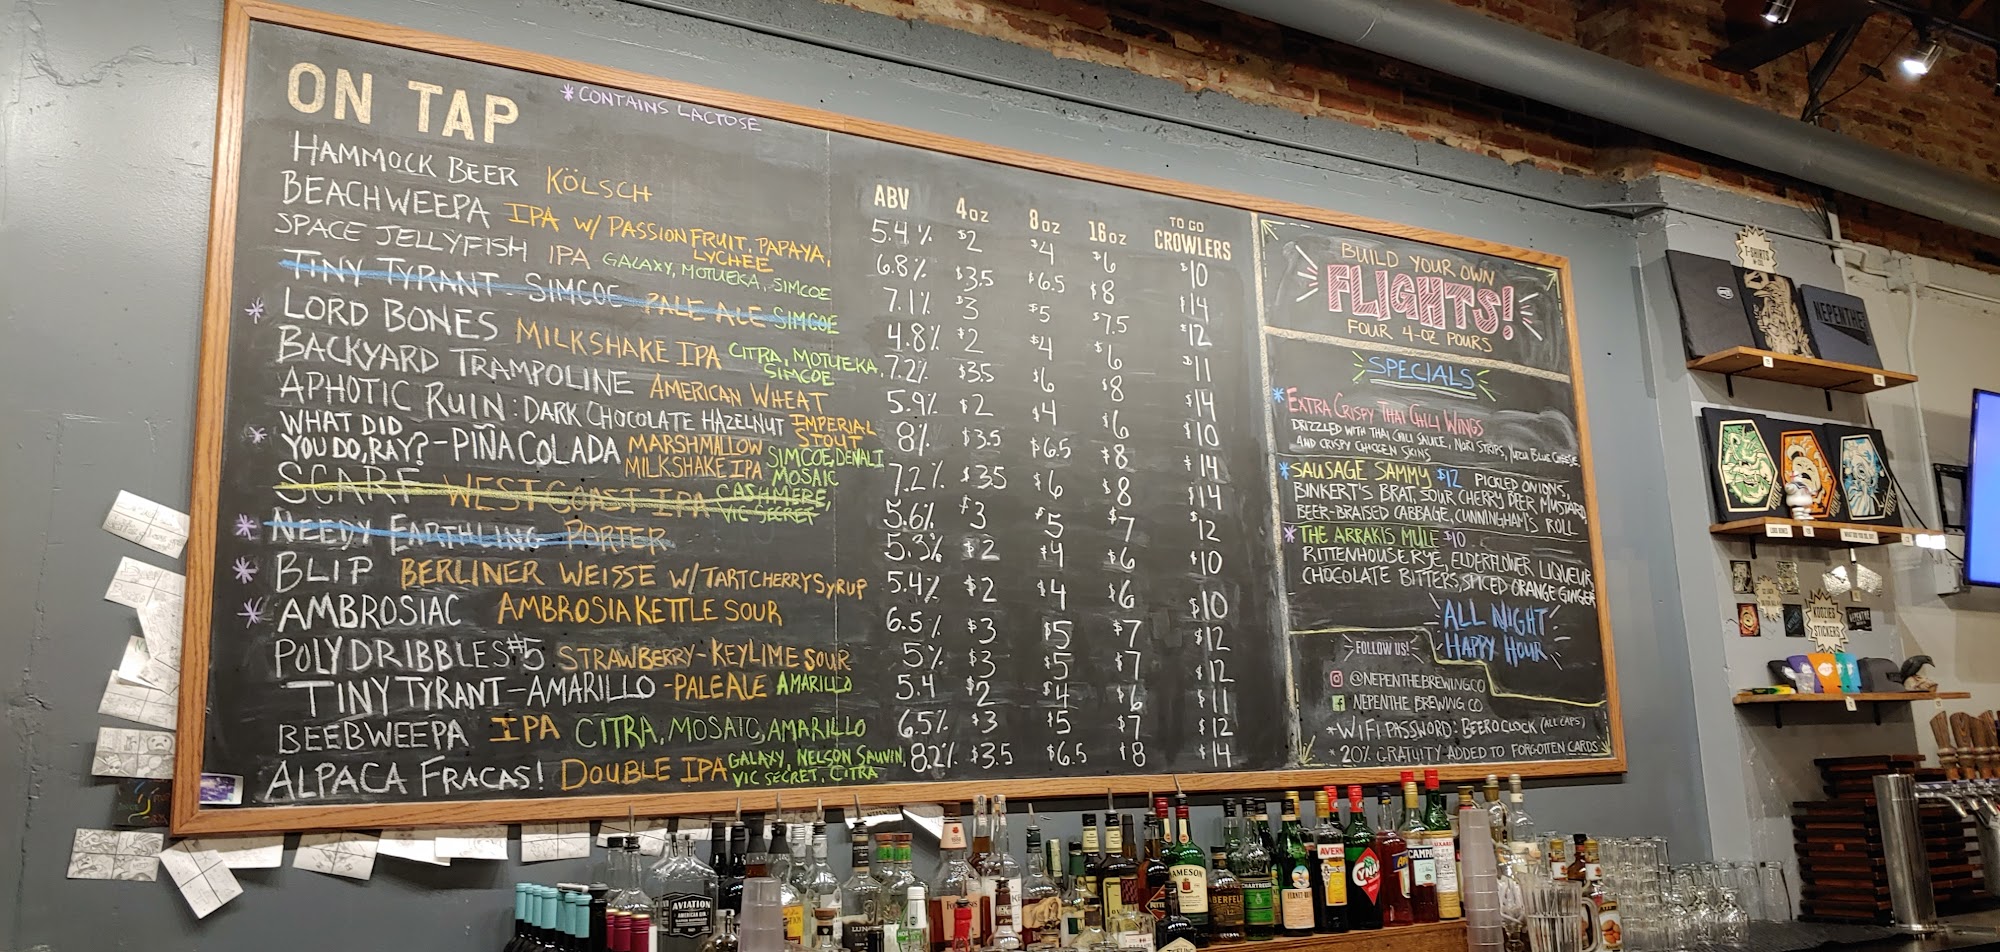 ON TAP
*CONTAINS LACTOSE
ABV 4oz 8oz 16oz TO GO CROWLERS
HAMMOCK BEER KÖLSCH 5.4% $2 $4 $6 $10
BEACHWEEPA IPA W/ PASSIONFRUIT, PAPAYA, LYCHEE 6.8% $3.5 $6.5 $8 $14
SPACE JELLYFISH IPA GALAXY, MOTUEKA, SIMCOE 7.1% $3 $5 $7.5 $12
TINY TYRANT - SIMCOE PALE ALE SIMCOE 4.8% $2 $4 $6 $11
* LORD BONES MILKSHAKE IPA CITRA, MOTUEKA, SIMCOE 7.2% $3.5 $6 $8 $14
BACKYARD TRAMPOLINE AMERICAN WHEAT 5.9% $2 $4 $6 $10
APHOTIC RUIN: DARK CHOCOLATE HAZELNUT IMPERIAL STOUT 8% $3.5 $6.5 $8 $14
* WHAT DID YOU DO, RAY? - PIÑA COLADA MARSHMALLOW MILKSHAKE IPA SIMCOE, DENALI MOSAIC 7.2% $35 $6 $8 $14
SCARF WEST COAST IPA CASHMERE, VIC SECRET 5.6% $3 $5 $7 $12
* NEEDY EARTHLING PORTER 5.3% $2 $4 $6 $10
* BLIP BERLINER WEISSE W/ TART CHERRY SYRUP 5.4% $2 $4 $6 $10
* AMBROSIAC AMBROSIA KETTLE SOUR 6.5% $3 $5 $7 $12
POLYDRIBBLES #5 STRAWBERRY-KEYLIME SOUR 5% $3 $5 $7 $12
TINY TYRANT - AMARILLO - PALE ALE AMARILLO 5.4 $2 $4 $6 $11
BEEBWEEPA IPA CITRA, MOSAIC, AMARILLO 6.5% $3 $5 $7 $12
ALPACA FRACAS! DOUBLE IPA GALAXY, NELSON SAUVIN, VIC SECRET, CITRA 8.2% $3.5 $6.5 $8 $14
BUILD YOUR OWN
FLIGHTS!
FOUR 4-OZ POURS
SPECIALS
* EXTRA CRISPY THAI CHILI WINGS
DRIZZLED WITH THAI CHILI SAUCE, NORI STRIPS, YUZU BLUE CHEESE,
AND CRISPY CHICKEN SKINS
* SAUSAGE SAMMY $12 PICKLED ONIONS,
BINKERT'S BRAT, SOUR CHERRY BEER MUSTARD,
BEER-BRAISED CABBAGE, CUNNINGHAM'S ROLL
* THE ARRAKIS MULE $10
RITTENHOUSE RYE, ELDERFLOWER LIQUEUR,
CHOCOLATE BITTERS, SPICED ORANGE GINGER
ALL NIGHT
HAPPY HOUR
FOLLOW US!
@NEPENTHEBREWINGCO
NEPENTHE BREWING CO
* WIFI PASSWORD: BEEROCLOCK (ALL CAPS)
* 20% GRATUITY ADDED TO FORGOTTEN CARDS
T-SHIRTS
NEPENTHE
KOOZIES
STICKERS
AVIATION
JAMESON
AVERN
CYNAR
CAMPA